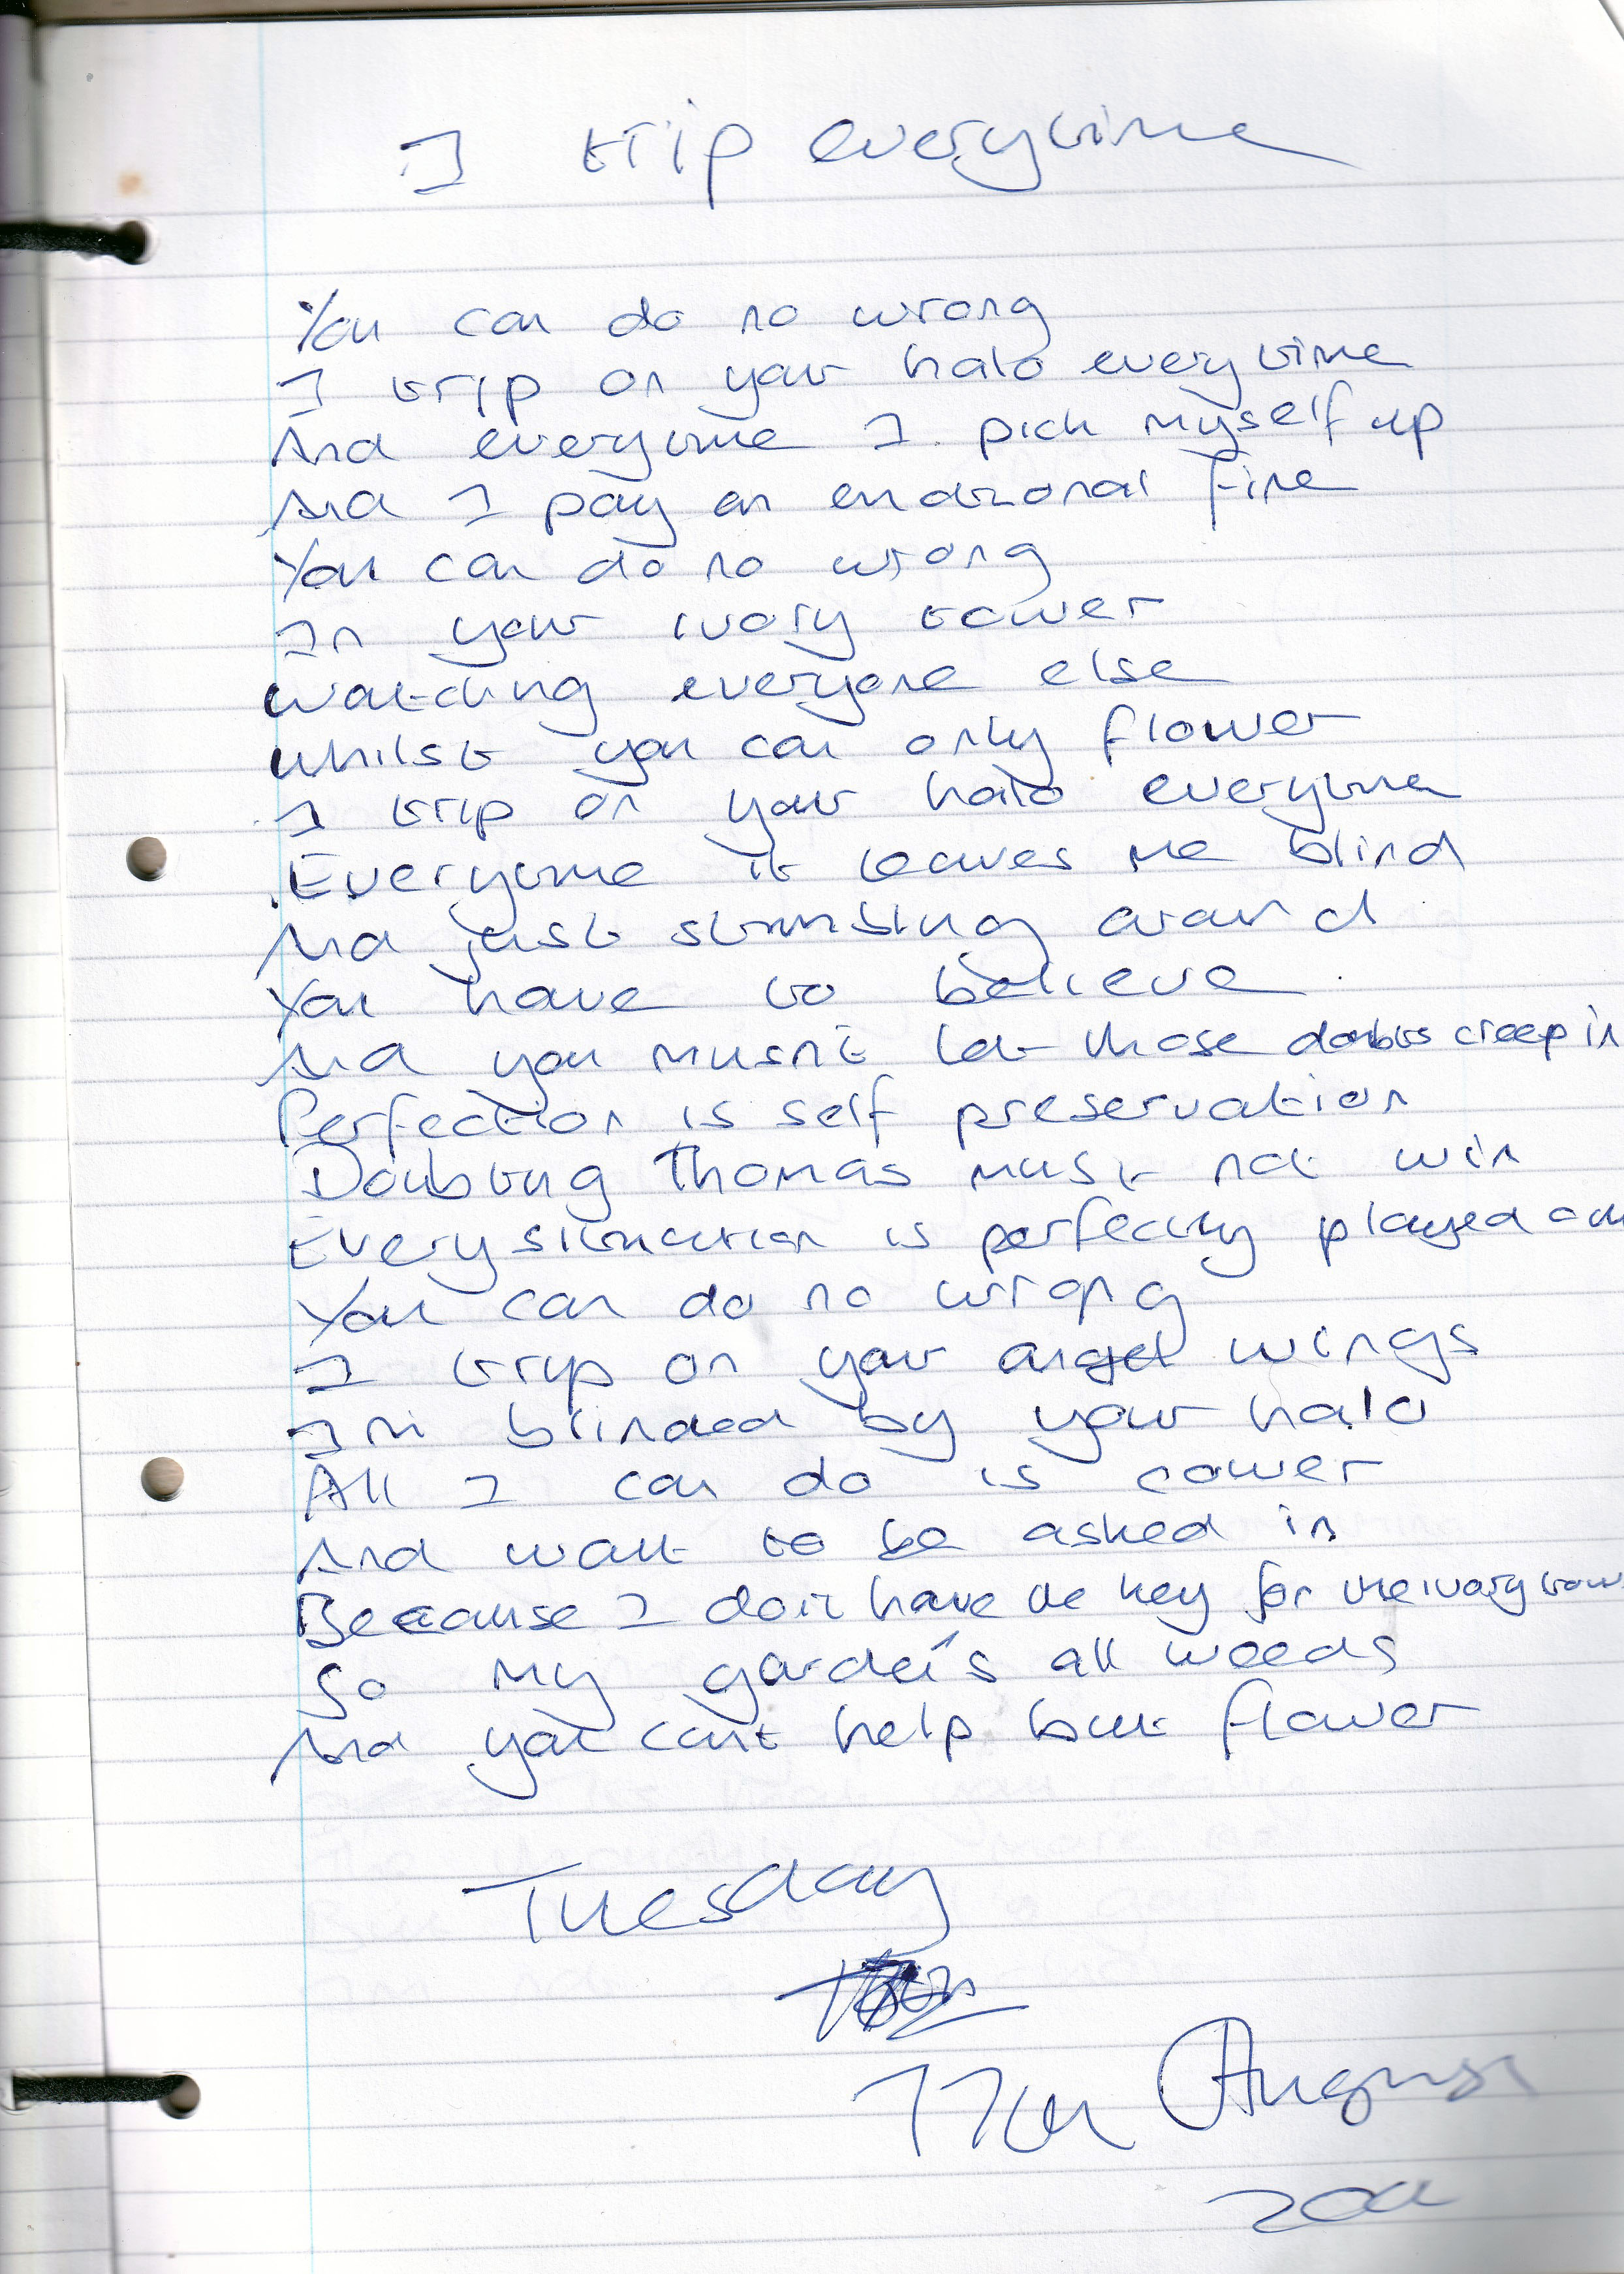 I trip everytime
You can do no wrong
I trip on your halo everytime
And everytime I pick myself up
And I pay an emotional fine
You can do no wrong
In your ivory tower
Watching everyone else
Whilst you can only flower
I trip on your halo everytime
Everytime it leaves me blind
And just stumbling around
You have to believe
And you musn't let those doubts creep in
Perfection is self preservation
Doubting Thomas must not win
Every situation is perfectly played out
You can do no wrong
I trip on your angel wings
I'm blinded by your halo
All I can do is cower
And wait to be asked in
Because I don't have the key for the ivory tower
So my garden's all weeds
And you can't help but flower
Tuesday
17th August